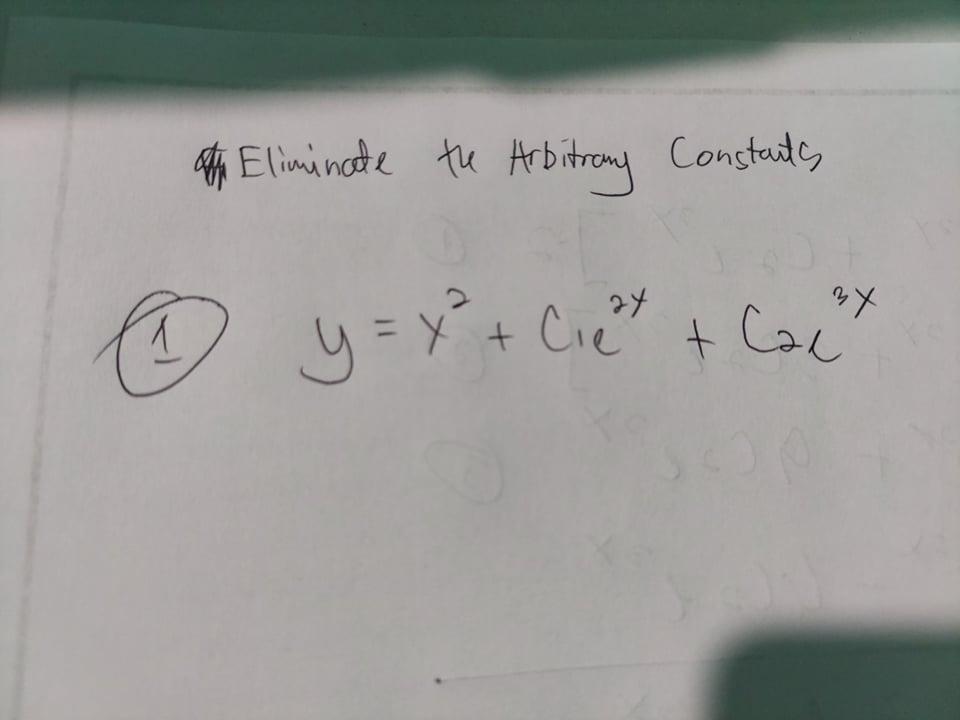 Eliminate the Arbitrary Constants
① y = x² + C₁e²ˣ + C₂e³ˣ